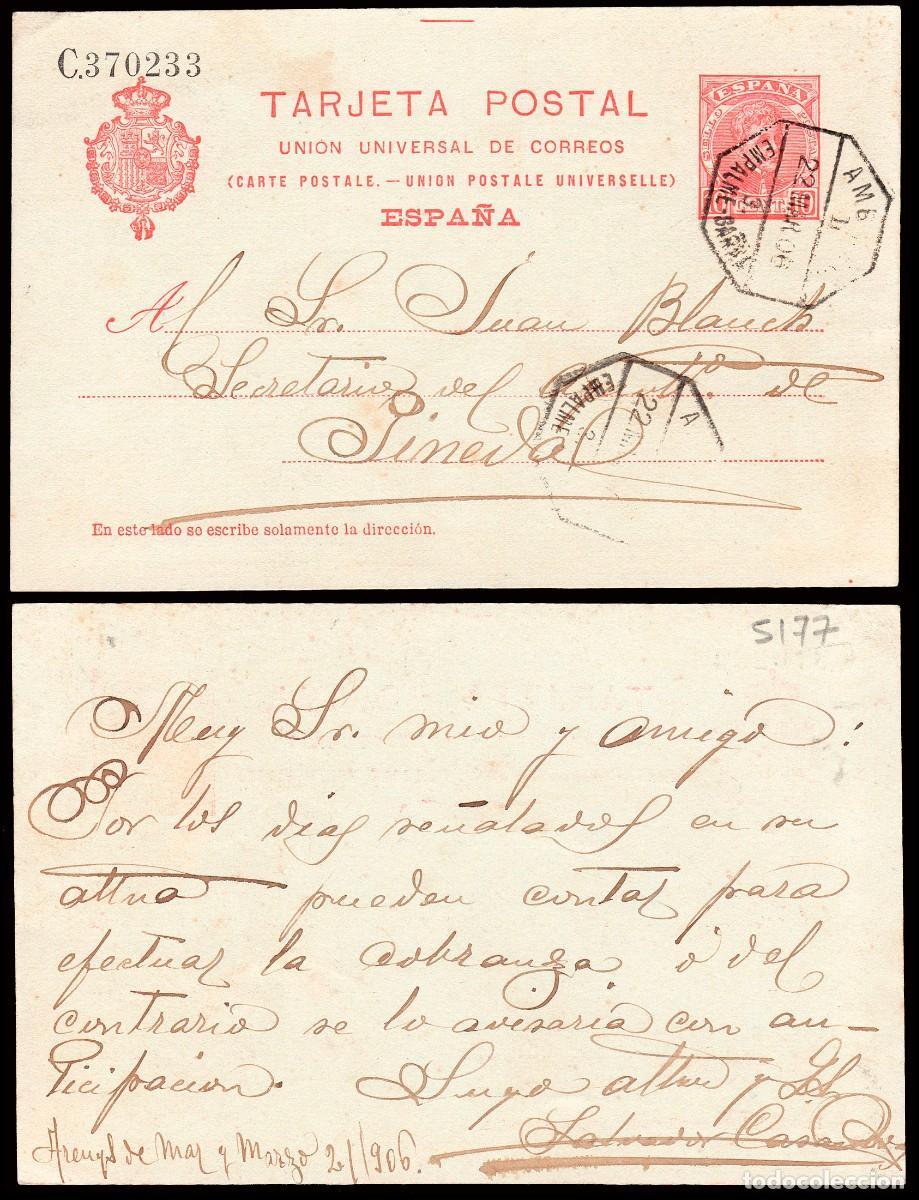 C.370233
TARJETA POSTAL
UNION UNIVERSAL DE CORREOS
(CARTE POSTALE. — UNION POSTALE UNIVERSELLE)
ESPAÑA
ESPAÑA
10 CENT. 10
AMB
22 MAR 06
EMPALME-BARNA
Al Sr. Juan Blanch
Secretario del de
Pineda
A
22
EMPALME
2
En este lado se escribe solamente la dirección.
5177
Muy Sr. mio y amigo:
Por los dias señalados en su
attna pueden contar para
efectuar la cobranza ó del
contrario se lo avisaria con an-
ticipacion. Suyo attmo y SS
Salvador Casa
Arenys de Mar y Marzo 21/906.
todocoleccion